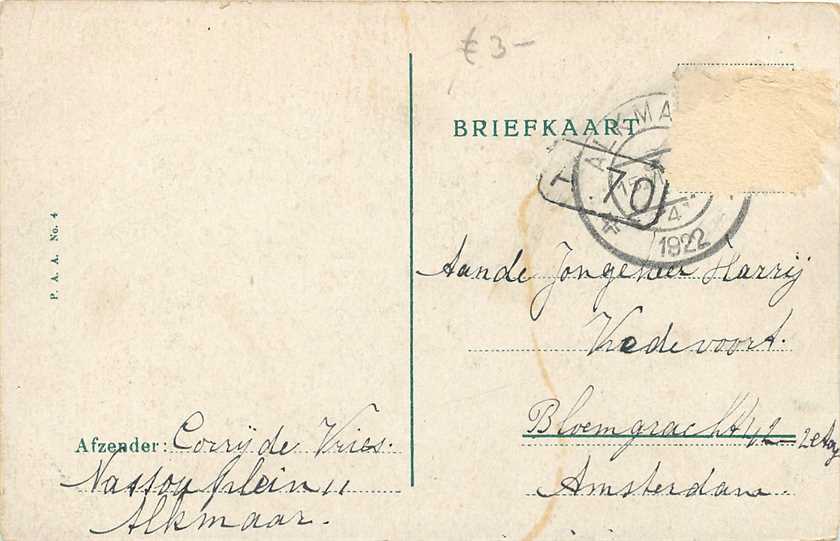 € 3-
BRIEFKAART
ALKMA
T. 70
4
1922
P. A. A. No. 4
Aan de Jongeheer Harrij
Vredevoort.
Bloemgracht 42-2etag
Amsterdam
Afzender: Corrij de Vries.
Nassou plein 11
Alkmaar.